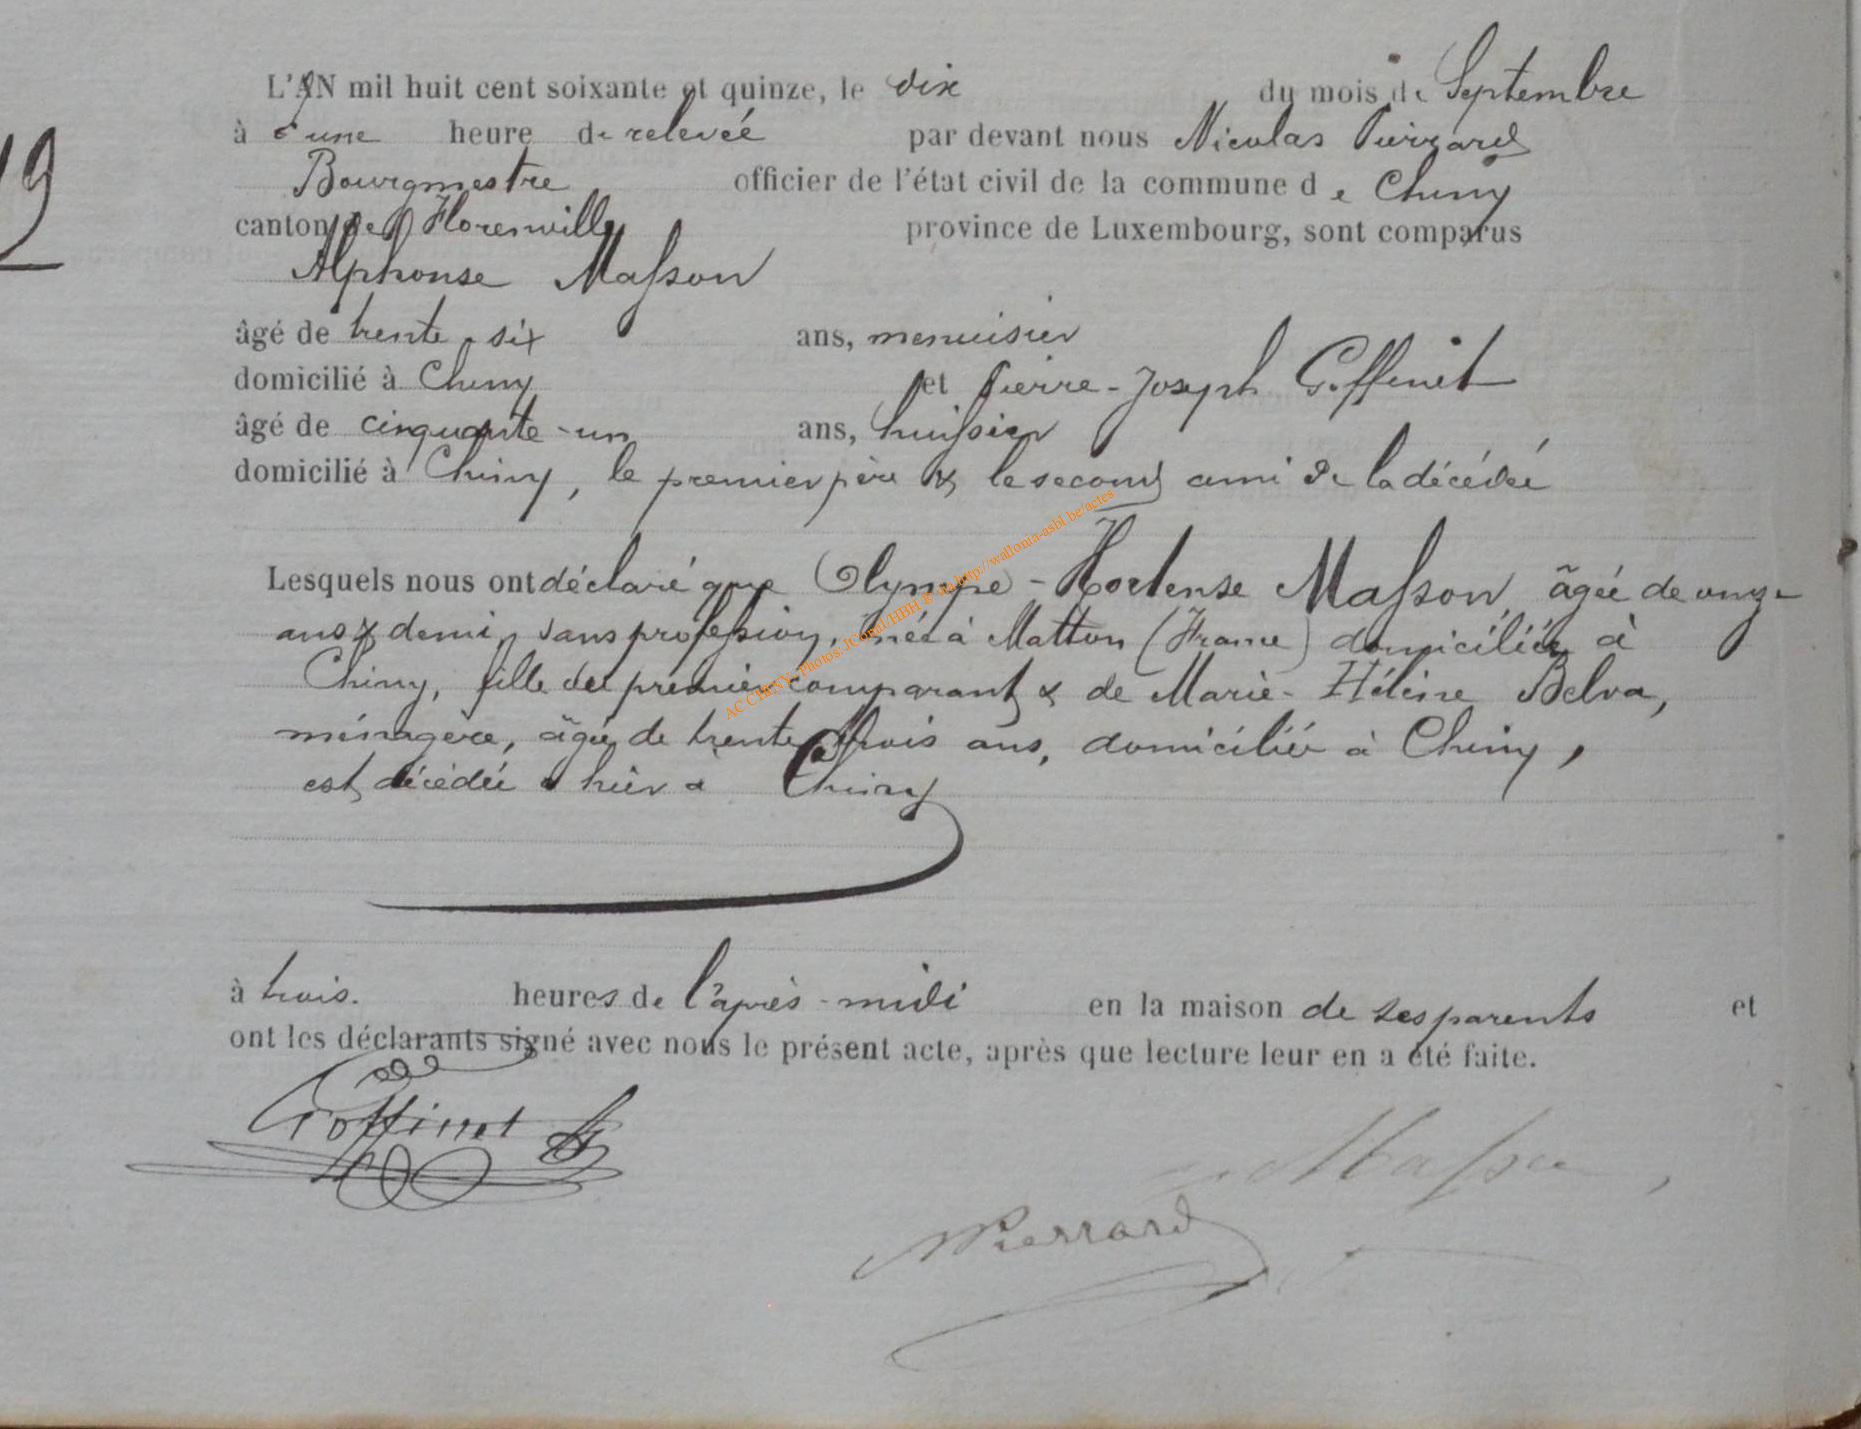 L'AN mil huit cent soixante et quinze, le dix du mois de Septembre
à une heure de relevée par devant nous Nicolas Pierrard
Bourgmestre officier de l'état civil de la commune de Chiny
canton de Florenville province de Luxembourg, sont comparus
19
Alphonse Masson
âgé de trente-six ans, menuisier
domicilié à Chiny et Pierre-Joseph Goffinet
âgé de cinquante-un ans, huissier
domicilié à Chiny, le premier père & le second ami de la décédée
Lesquels nous ont déclaré que Olympe-Hortense Masson, âgée de onze
ans & demi, sans profession, née à Matton (France) domiciliée à
Chiny, fille du premier comparant & de Marie-Hélène Belva,
ménagère, âgée de trente-trois ans, domiciliée à Chiny,
est décédée hier à Chiny
à trois heures de l'après-midi en la maison de ses parents et
ont les déclarants signé avec nous le présent acte, après que lecture leur en a été faite.
Goffinet
Masson
NPierrard
AC CHINY-Photos. JConal/HBH R via http://wallonia-asbl.be/actes